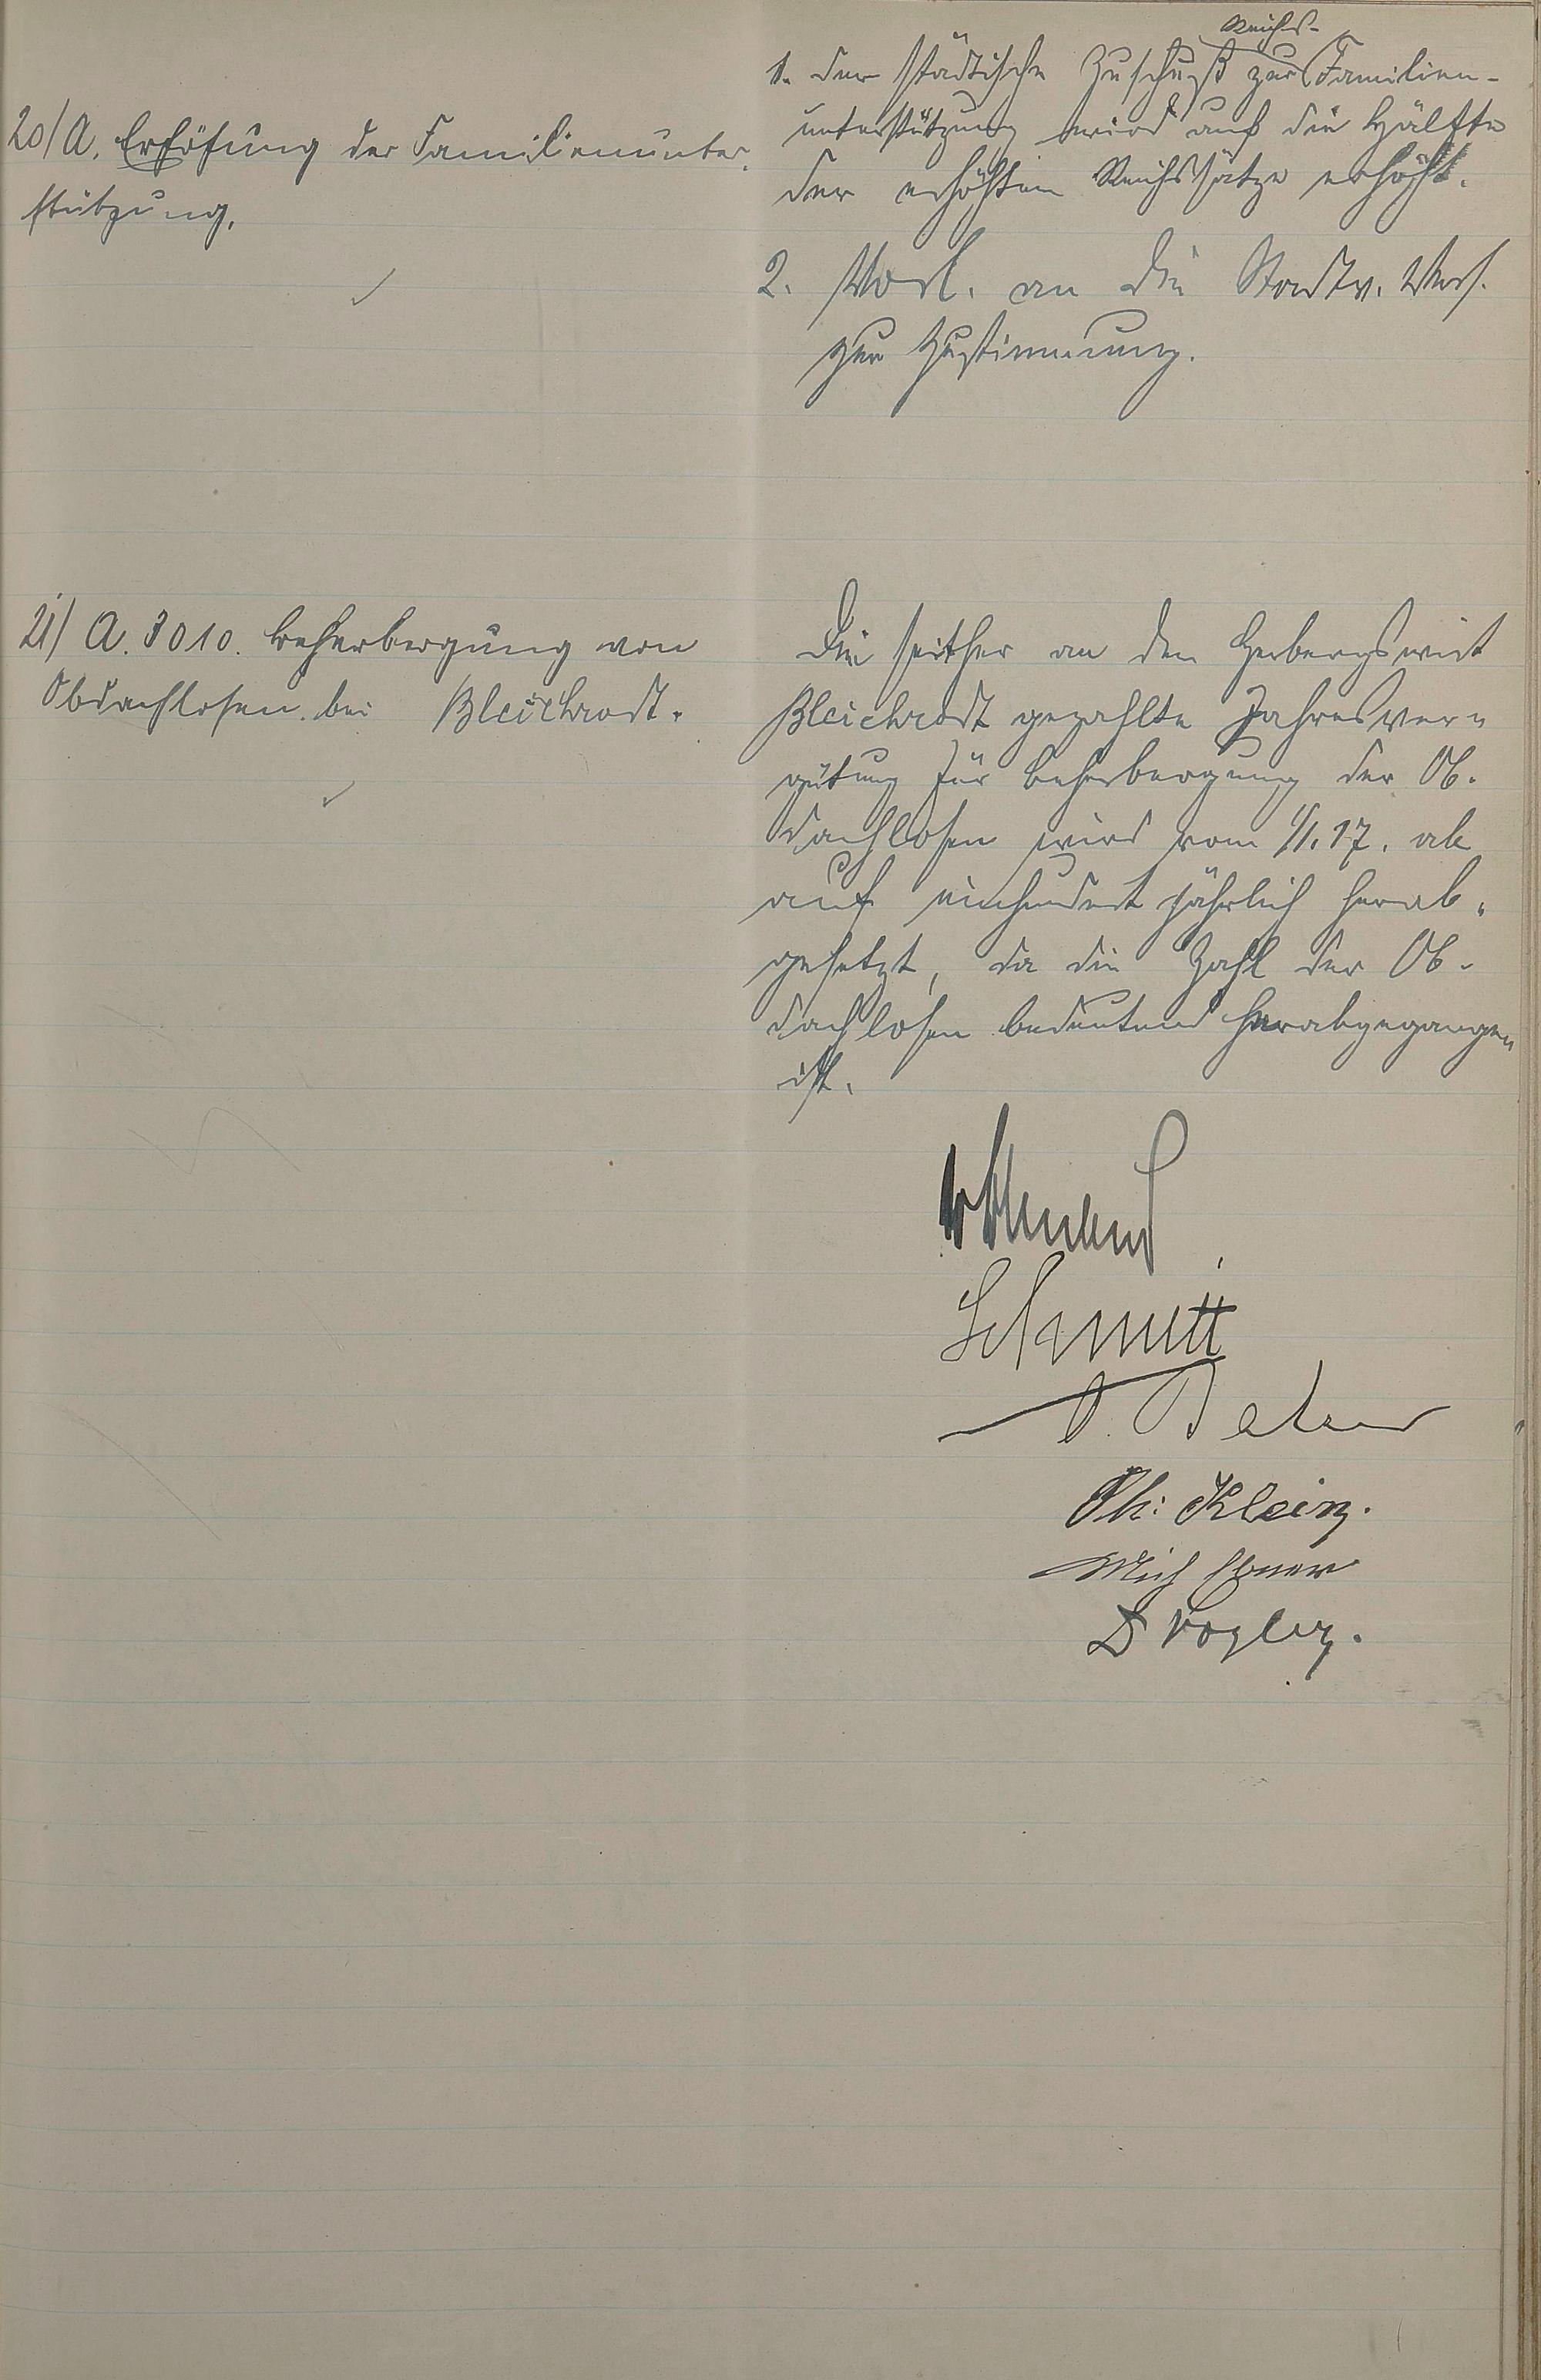 20/ A. Erhöhung der Familienunter-
stützung.
1. Der städtische Zuschuß zur Reichs-Familien-
unterstützung wird auf die Hälfte
der erhöhten Reichssätze erhöht.
2. Vorl. an die Stadtv. Vers.
zur Zustimmung.
21/ A. 3010. Beherbergung von
Obdachlosen bei Bleichrodt.
Die seither an den Herbergswirt
Bleichrodt gezahlte Jahresver-
gütung für Beherbergung der Ob-
dachlosen wird vom 1/1.17. ab
auf einhundert jährlich herab-
gesetzt, da die Zahl der Ob-
dachlosen bedeutend herabgegangen
ist.
Schmitt
Ph: Klein.
Mich
D Vogler.